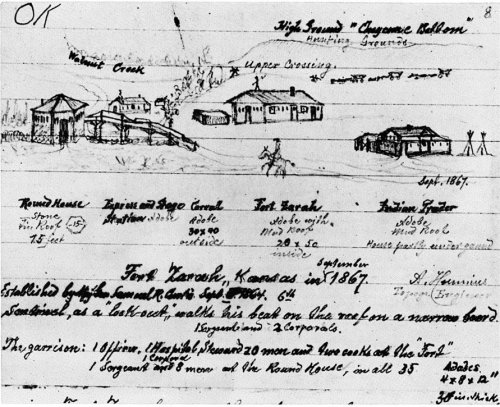 OK
8
High Ground "Cheyenne Bottom"
Hunting Grounds
Walnut Creek
Upper Crossing.
Sept. 1867.
Round House
Stone
Tin Roof
15
75 feet
Express and Stage
Station Adobe
Corral
Adobe
30 x 40
outside
Fort Zarah
Adobe with
Mud Roof
20 x 50
inside
Indian Trader
Adobe
Mud Roof
House partly under ground
Fort Zarah, Kansas in September 1867.
Established by Samuel R. Curtis Sept. 6th 1864.
Sentinel, as a look-out, walks his beat on the roof on a narrow board.
1 Sergeant and 2 Corporals.
The garrison: 1 Officer, 1 Hospital Steward 20 men and two cooks at the "Fort"
1 Corporal
1 Sergeant and 8 men at the Round House, in all 35
Adobes
4 x 8 x 12"
thick